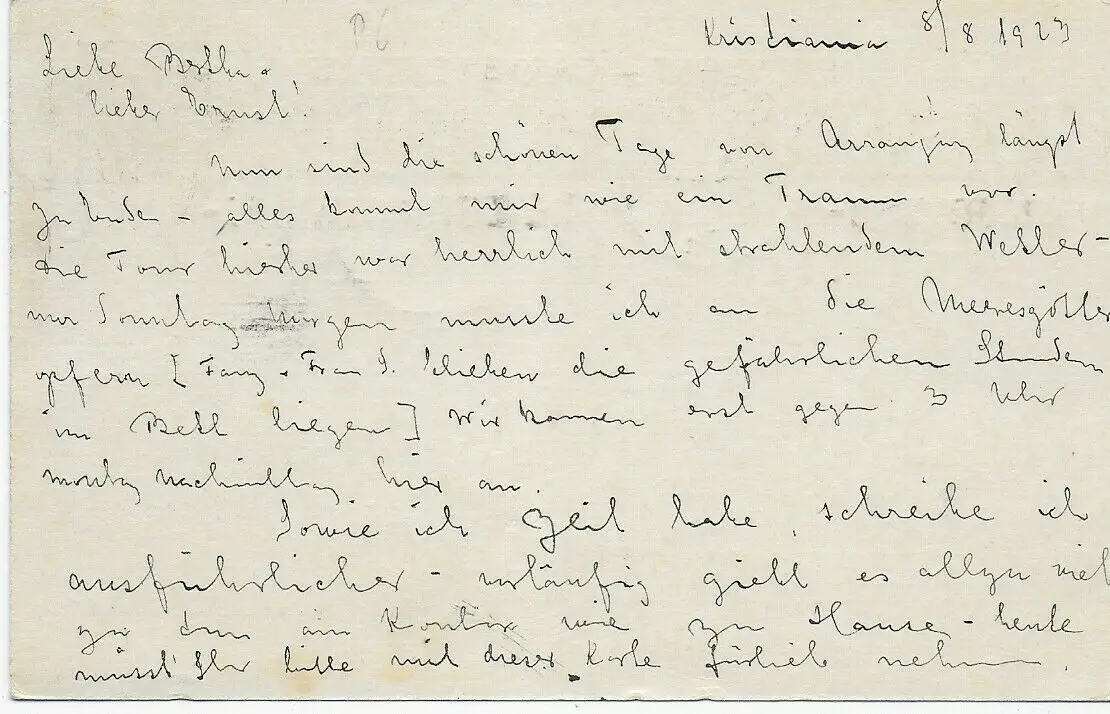 Kristiania 8/8 1923
Liebe Bertha +
lieber Ernst!
Nun sind die schönen Tage von längst
zu Ende – alles kommt mir wie ein Traum vor.
die Tour hierher war herrlich mit strahlendem Wetter –
nur Sonntag Morgen musste ich an die Meeresgötter
opfern [ + Frau S. blieben die gefährlichen Stunden
im Bett liegen] Wir kamen erst gegen 3 Uhr
montag nachmittag hier an.
Sowie ich Zeit habe, schreibe ich
ausführlicher – vorläufig giebt es allzu viel
zu tun am Kontor wie zu Hause – heute
müsst Ihr bitte mit dieser Karte fürlieb nehmen.